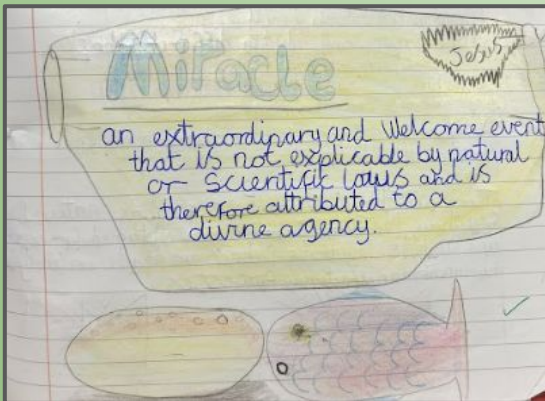 Miracle
Jesus
an extraordinary and Welcome event
that is not explicable by natural
or scientific laws and is
therefore attributed to a
divine agency.